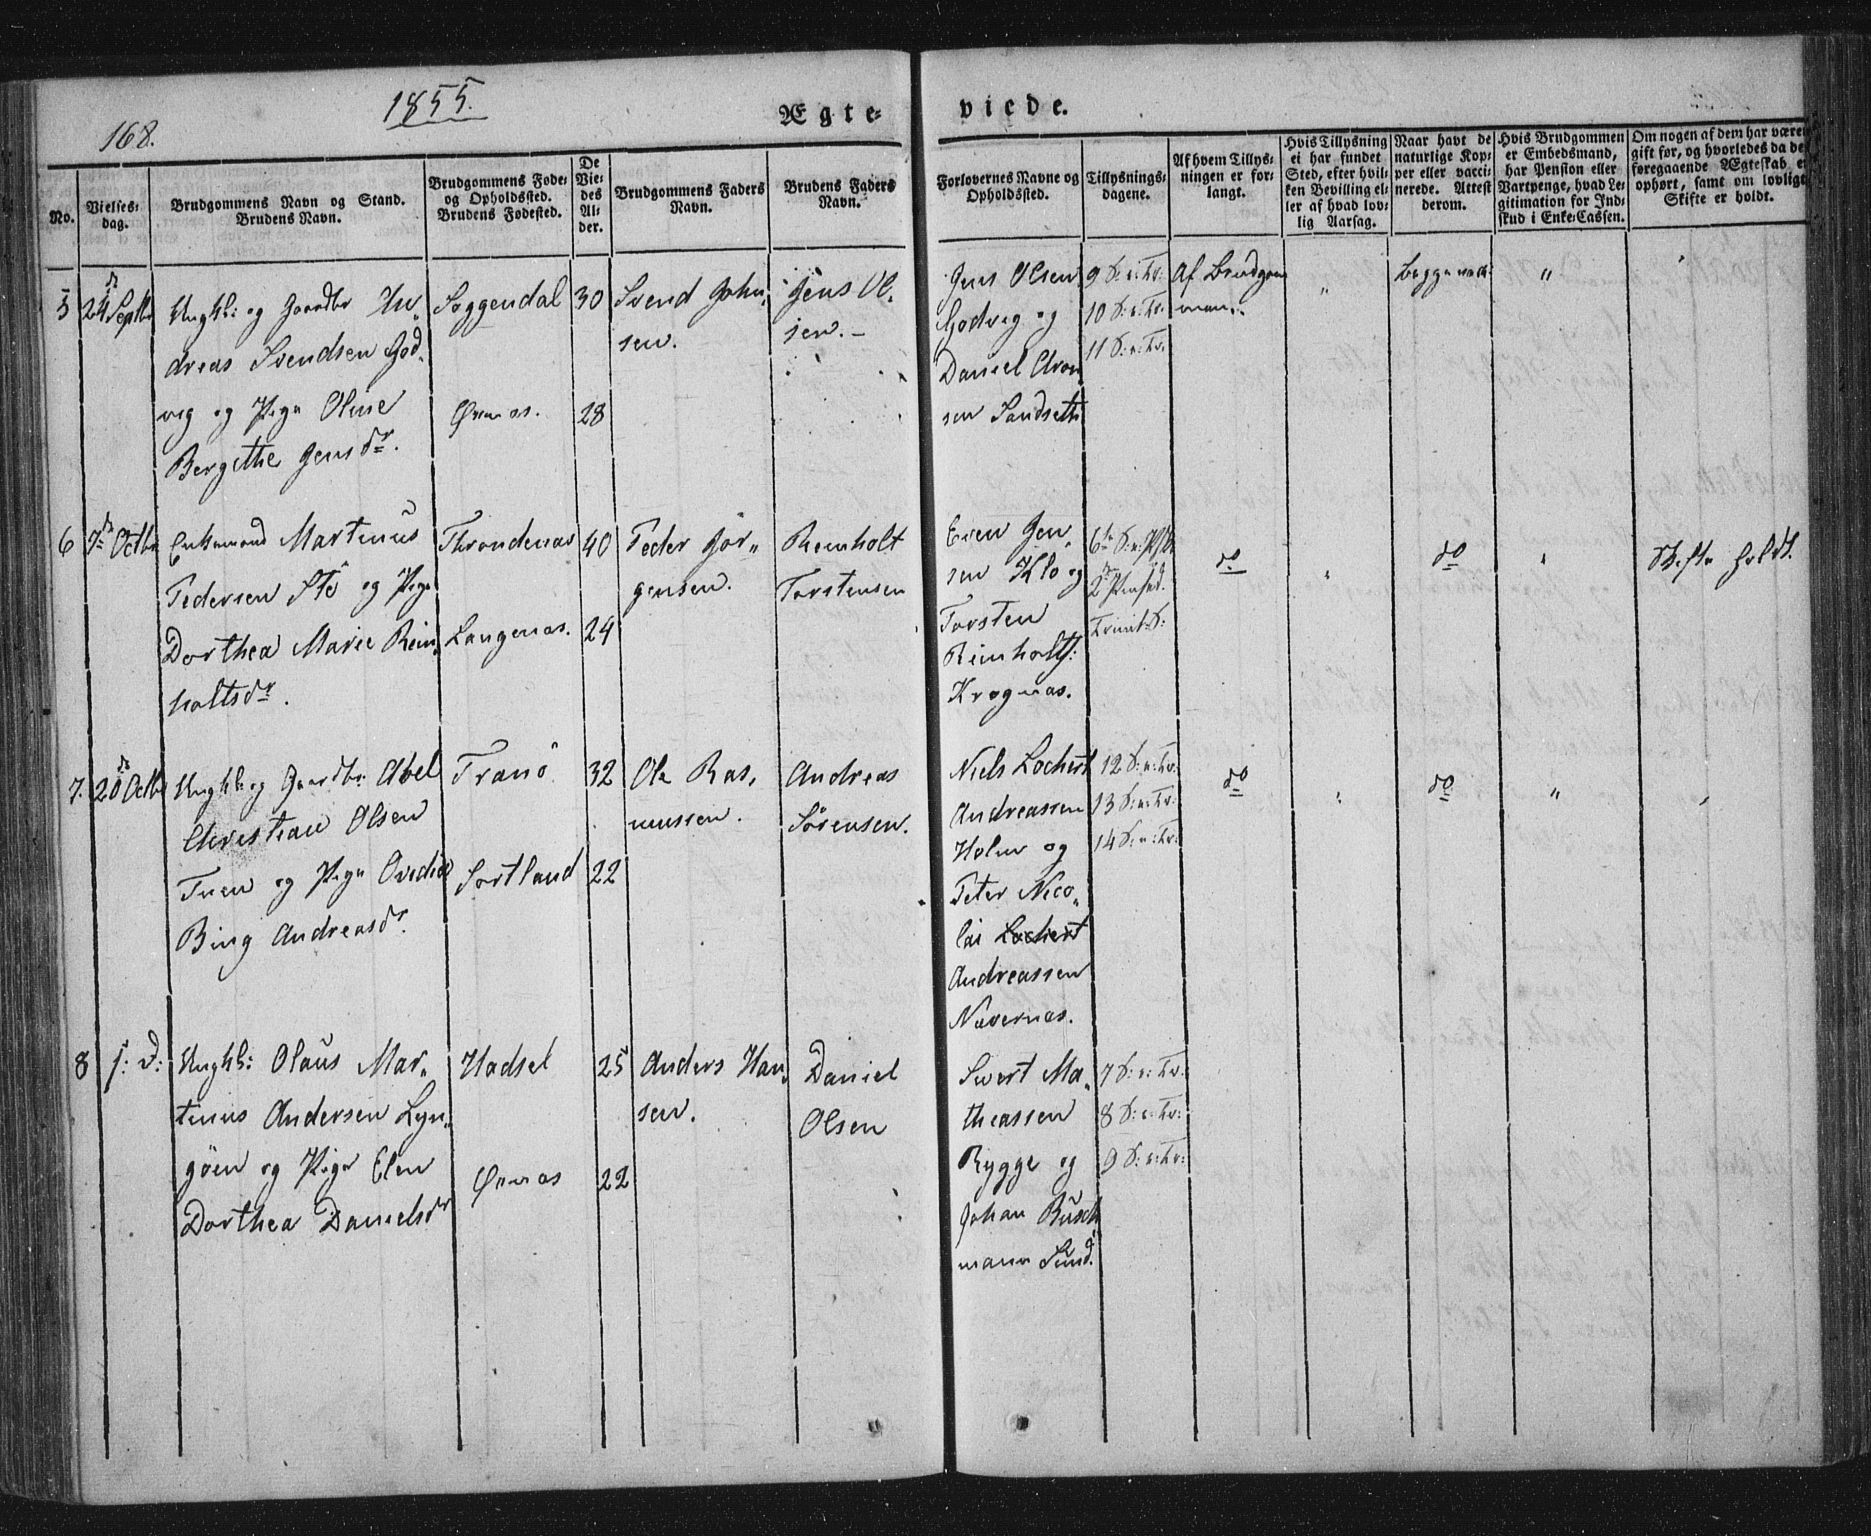 168.
1855.
Ægte-
viede.
No.
Vielses-
dag.
Brudgommens Navn og Stand.
Brudens Navn.
Brudgommens Føde-
og Opholdssted.
Brudens Fødested.
De
Vie-
des
Al-
der.
Brudgommens Faders
Navn.
Brudens Faders
Navn.
Forlovernes Navne og
Opholdssted.
Tillysnings-
dagene.
Af hvem Tillys-
ningen er for-
langt.
Hvis Tillysning
ei har fundet
Sted, efter hvil-
ken Bevilling el-
ler af hvad lov-
lig Aarsag.
Naar havt de
naturlige Kop-
per eller vacci-
nerede. Attest
derom.
Hvis Brudgommen
er Embedsmand,
har Pension eller
Vartpenge, hvad Le-
gitimation for Ind-
skud i Enke-Cassen.
Om nogen af dem har været
gift før, og hvorledes da de
foregaaende Ægteskab er
ophørt, samt om lovligt
Skifte er holdt.
5
24 Septbr
Ungk: og Gaardbr An-
dreas Svendsen God-
vig og Pige Oline
Bergithe Jensdr.
Soggendal
Øxnæs.
30
28
Svend John-
sen.
Jens Ol-
sen. -
Jens Olsen
Godvig og
Daniel Aron
sen Sandseth
9 S: e: Tr:
10 S: e: Tr:
11 S: e: Tr:
Af Brudgom
men.
"
Begge vacc:
"
6
7de Octbr
Enkemand Martinus
Pedersen Stö og Pige
Dorthea Marie Rein-
holtsdr.
Throndenæs
Langenæs.
40
24
Peder Jör-
gensen.
Reinholt
Torstensen
Even Jen-
sen Klo og
Torsten
Reinholts:
Krognæs.
6te S: e: Psk:
2den Pinsed.
Trinit: S:
do
"
do
"
Skifte holdt.
7.
20 Octbr
Ungk: og Gaardbr: Abel
Christian Olsen
Tuen og Pige Ovedia
Bing Andreasdr.
Tranö
Sortland
32
22
Ole Ras-
mussen.
Andreas
Sörensen.
Niels Lochert
Andreassen
Holm og
Peter Nico-
lai Lochert
Andreassen
Navernæs.
12 S: e: Tr:
13 S: e: Tr:
14 S: e: Tr:
do
"
do
"
8
s: D:
Ungk: Olaus Mar-
tinus Andersen Lyn-
göen og Pige Elen
Dorthea Danielsdr
Hadsel
Øxnæs
25
22
Anders Han-
sen.
Daniel
Olsen
Sivert Ma-
theassen
Rygge og
Johan Busch
mann Sund.
7 S: e: Tr:
8 S: e: Tr:
9 S: e: Tr: